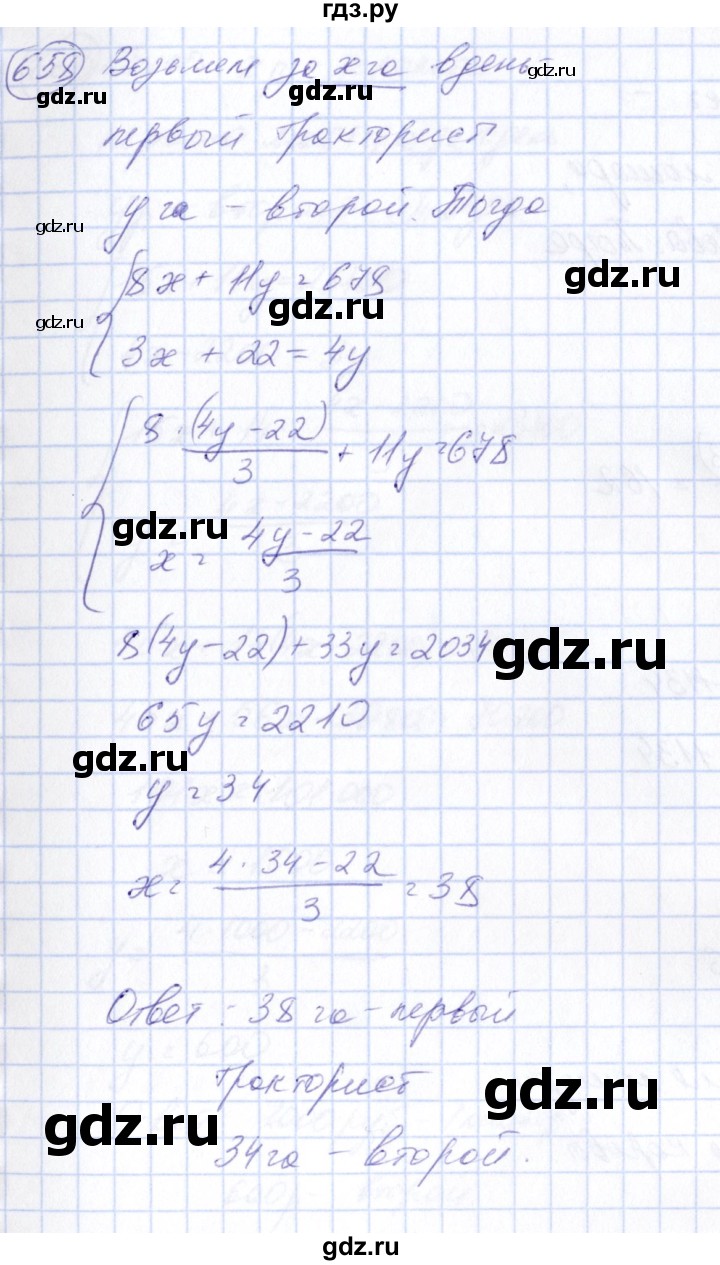 гдз.ру
658 Возьмем за x га в день -
gdz.ru
gdz.ru
gdz.ru
первый тракторист
y га - второй. Тогда
gdz.ru
gdz.ru
8x + 11y = 678
gdz.ru
gdz.ru
gdz.ru
3x + 22 = 4y
8 · (4y - 22) / 3 + 11y = 678
gdz.ru
x = (4y - 22) / 3
8(4y - 22) + 33y = 2034
gdz.ru
65y = 2210
gdz.ru
y = 34
x = (4 · 34 - 22) / 3 = 38
Ответ: 38 га - первый
тракторист
gdz.ru
gdz.ru
34 га - второй.
gdz.ru